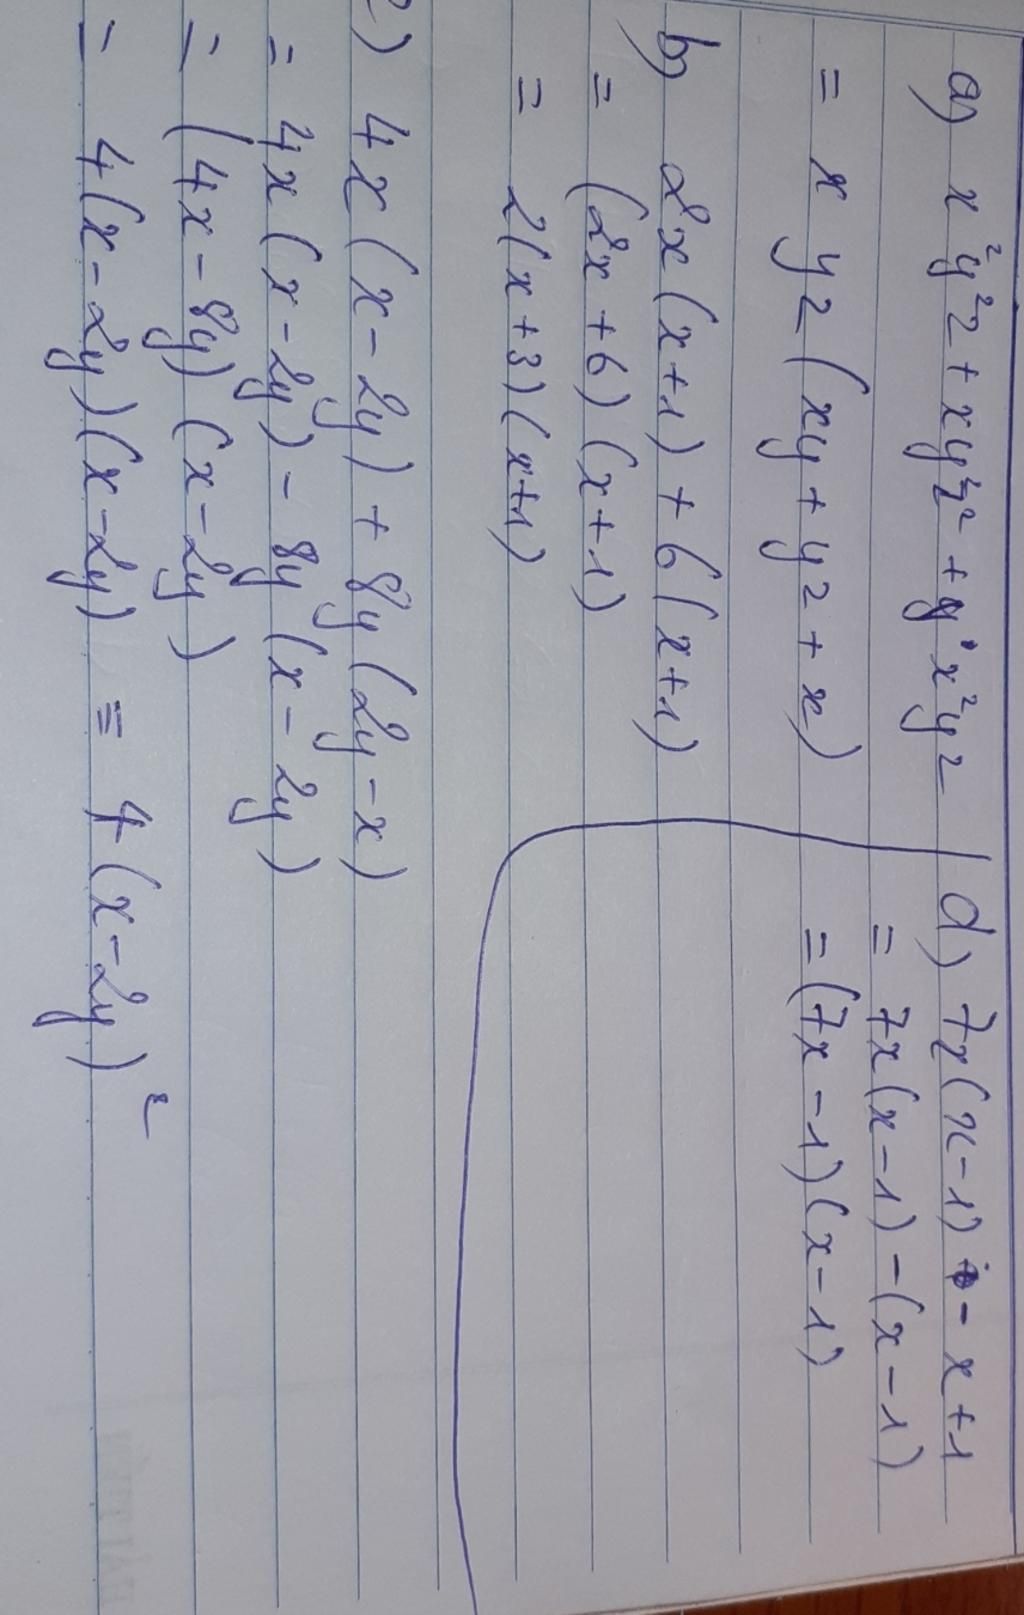 a) x²y²z + xy²z² + x²yz
= xyz(xy + yz + x)
b) 2x(x+1) + 6(x+1)
= (2x+6)(x+1)
= 2(x+3)(x+1)
d) 7x(x-1) - x+1
= 7x(x-1) - (x-1)
= (7x-1)(x-1)
) 4x(x-2y) + 8y(2y-x)
= 4x(x-2y) - 8y(x-2y)
= (4x-8y)(x-2y)
= 4(x-2y)(x-2y) = 4(x-2y)²